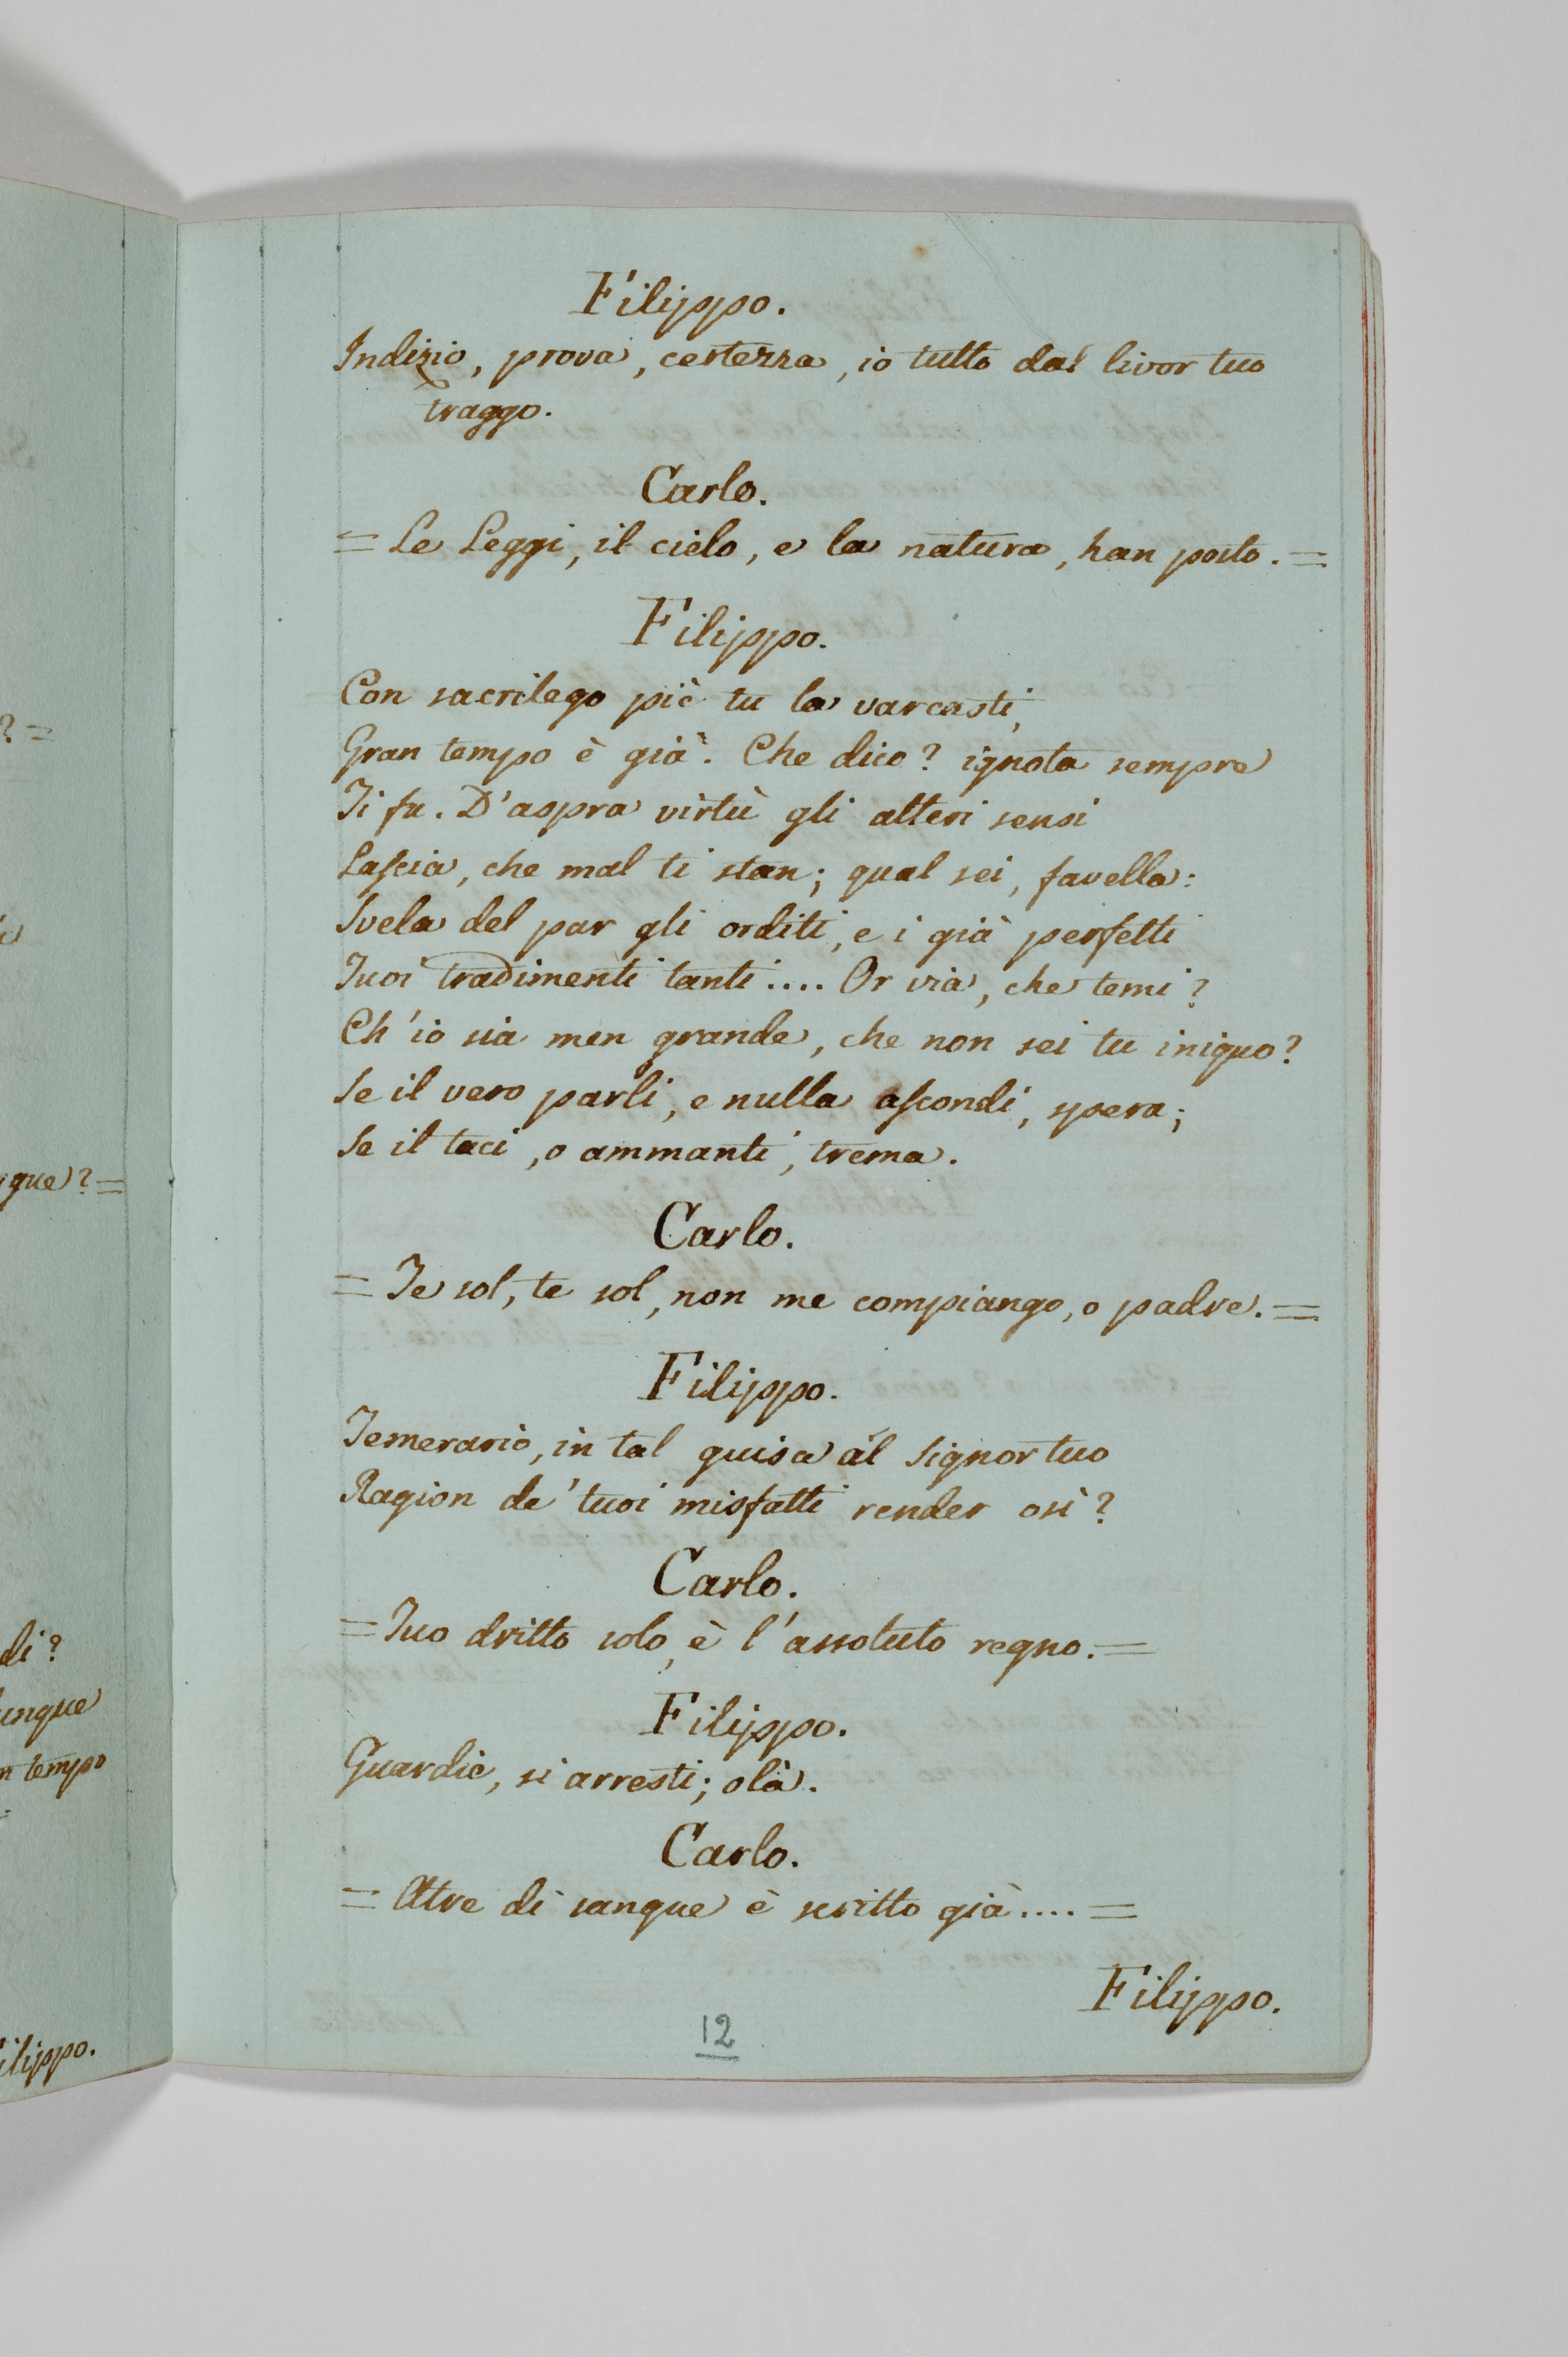 ? =
gue? =
di?
unque
n tempo
ilippo.
Filippo.
Indizio, prova, certezza, io tutto dal livor tuo
traggo.
Carlo.
= Le Leggi, il cielo, e la natura, han posto. =
Filippo.
Con sacrilego piè tu la varcasti,
Gran tempo è già. Che dico? ignota sempre
Ti fu. D'aspra virtù gli alteri sensi
Lascia, che mal ti stan; qual sei, favella:
Svela del par gli orditi, e i già perfetti
Tuoi tradimenti tanti.... Or via, che temi?
Ch'io sia men grande, che non sei tu iniquo?
Se il vero parli, e nulla ascondi, spera;
Se il taci, o ammanti, trema.
Carlo.
= Te sol, te sol, non me compiango, o padre. =
Filippo.
Temerario, in tal guisa al Signor tuo
Ragion de' tuoi misfatti render osi?
Carlo.
= Tuo dritto solo, è l'assoluto regno. =
Filippo.
Guardie, si arresti; olà.
Carlo.
= Atre di sangue è scritto già.... =
Filippo.
12